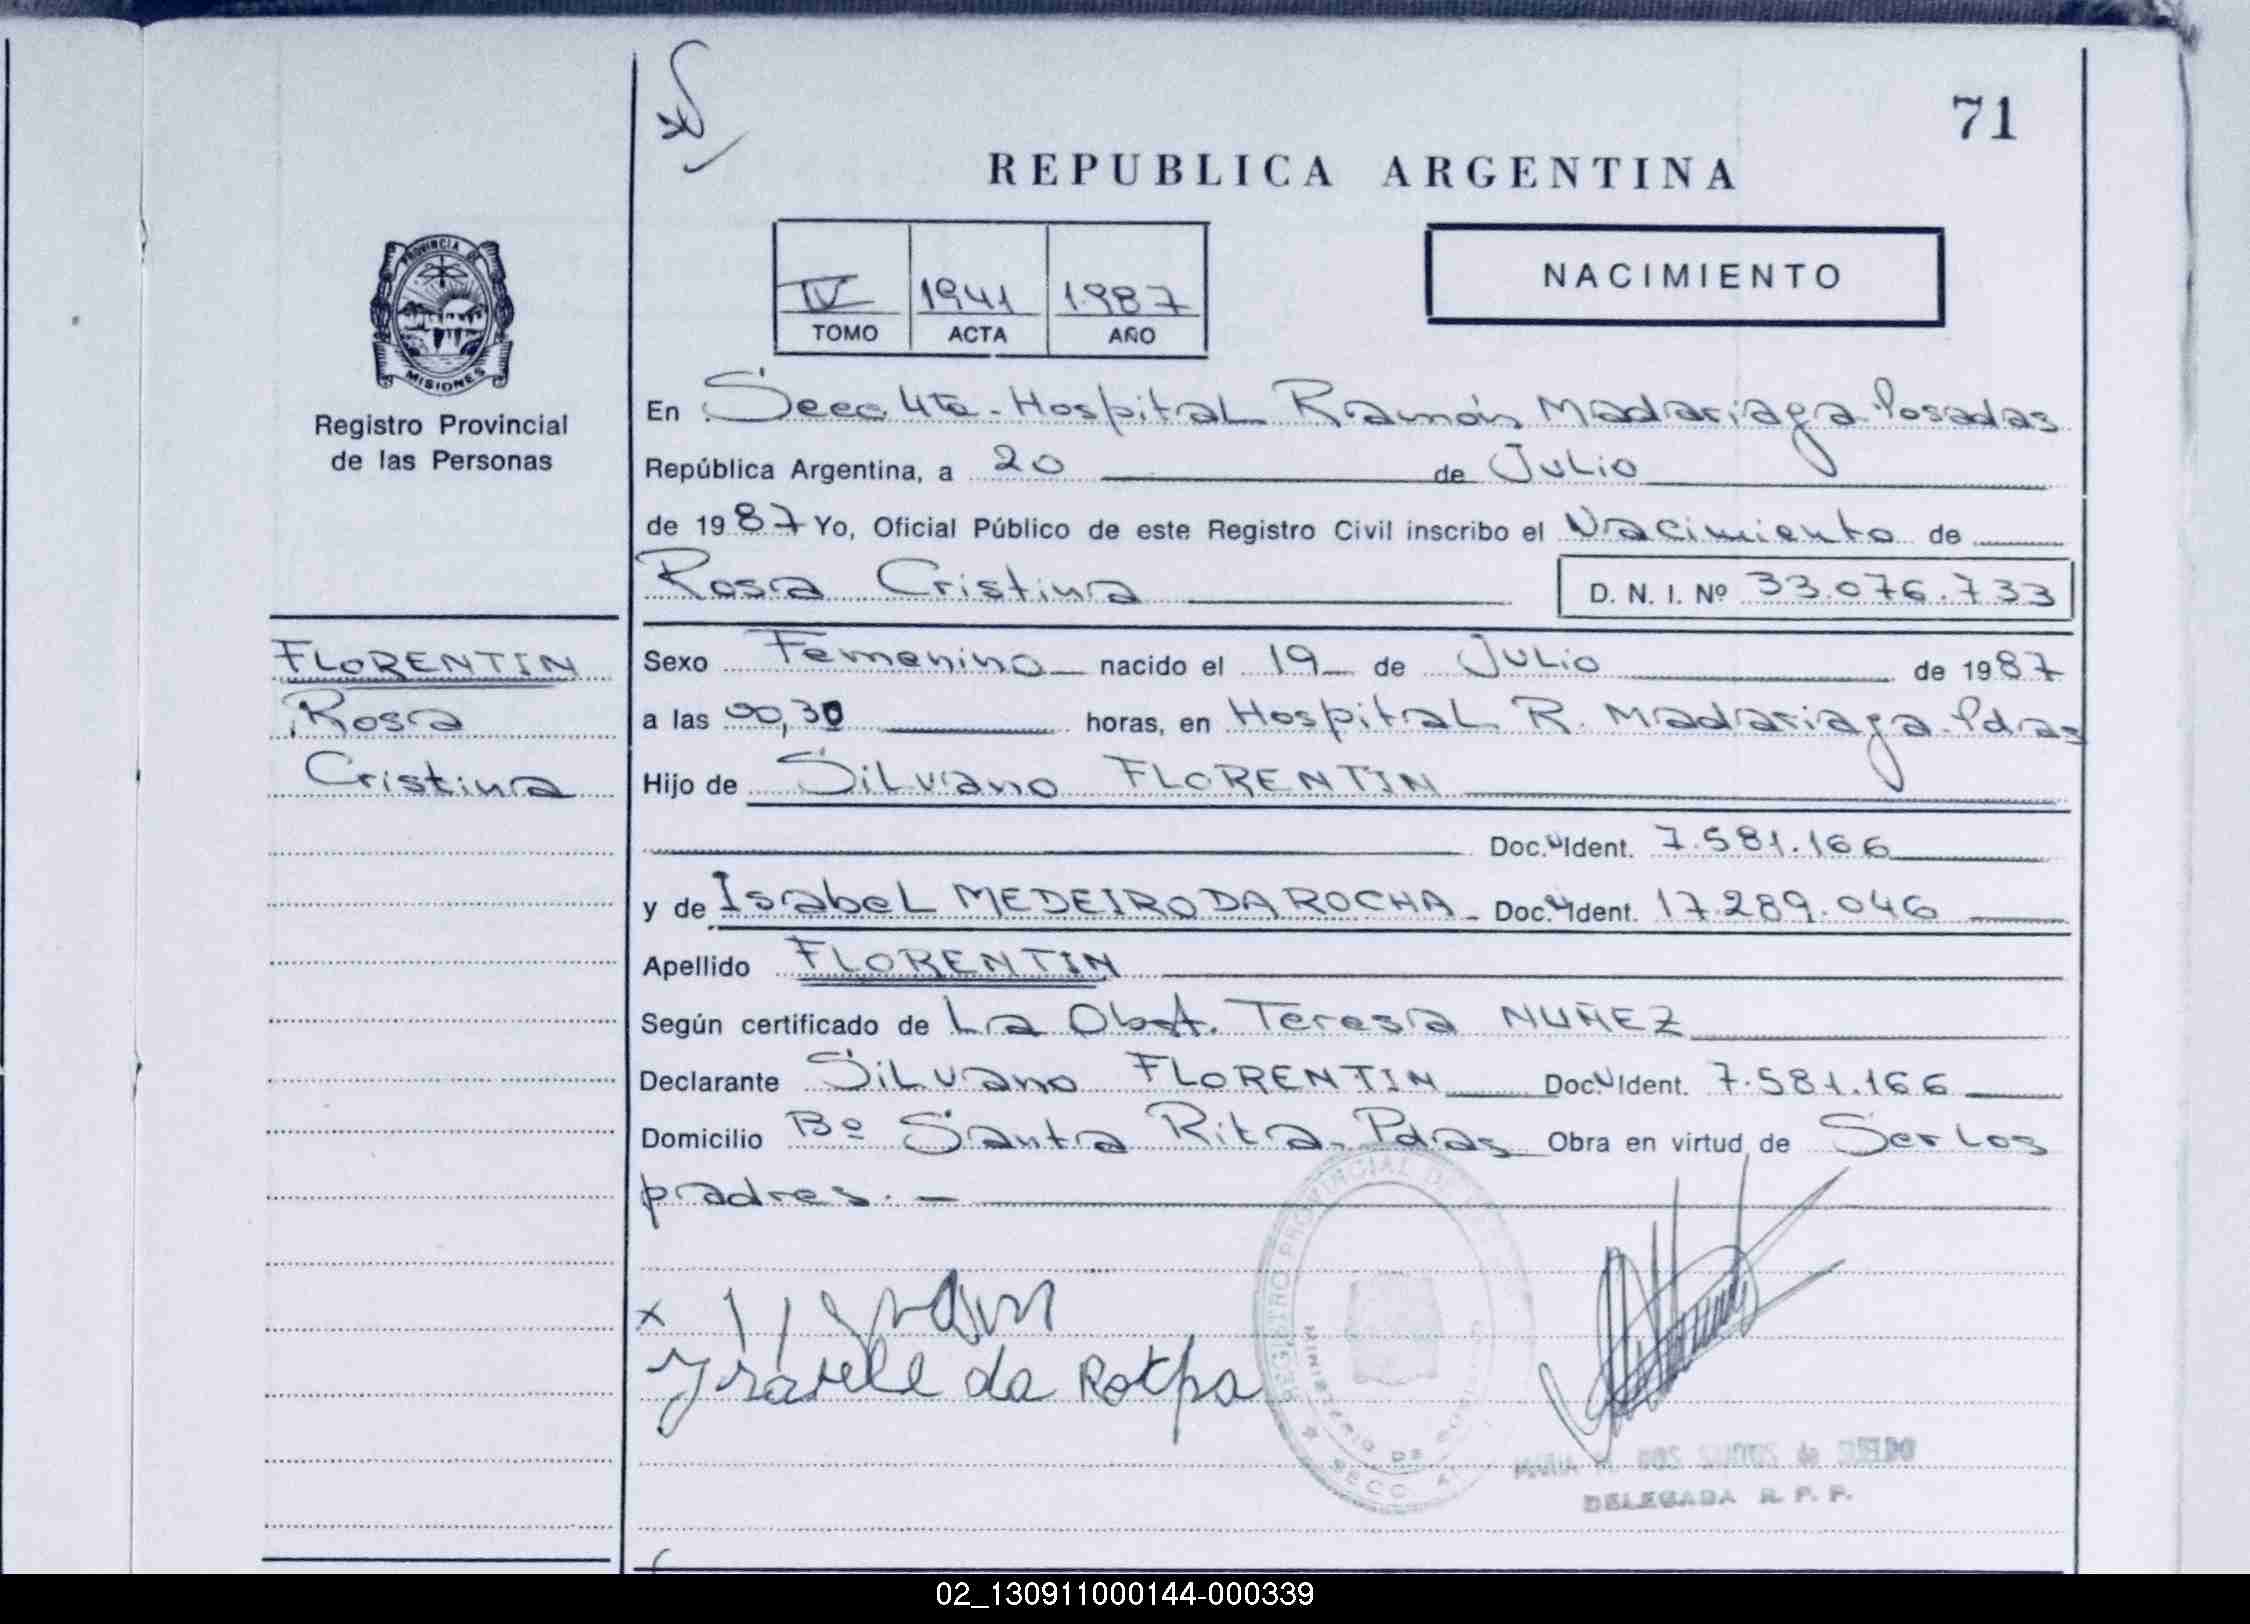 71
REPUBLICA ARGENTINA
PROVINCIA DE
MISIONES
Registro Provincial
de las Personas
IV 1941 1987
TOMO ACTA AÑO
NACIMIENTO
En Secc 4ta - Hospital Ramón Madariaga - Posadas
República Argentina, a 20 de Julio
de 1987 Yo, Oficial Público de este Registro Civil inscribo el Nacimiento de
Rosa Cristina D. N. I. Nº 33.076.733
FLORENTIN
Rosa
Cristina
Sexo Femenino nacido el 19 de Julio de 1987
a las 00,30 horas, en Hospital R. Madariaga - Pdas
Hijo de Silvano FLORENTIN
Doc. Ident. 7.581.166
y de Isabel MEDEIRO DA ROCHA - Doc. Ident. 17.289.046
Apellido FLORENTIN
Según certificado de La Obst. Teresa NUÑEZ
Declarante Silvano FLORENTIN Doc. Ident. 7.581.166
Domicilio Bº Santa Rita - Pdas Obra en virtud de Ser los
padres. -
x
da
REGISTRO PROVINCIAL DE
MINISTERIO DE
SECC
MARIA
DELEGADA R. P. P.
02_130911000144-000339